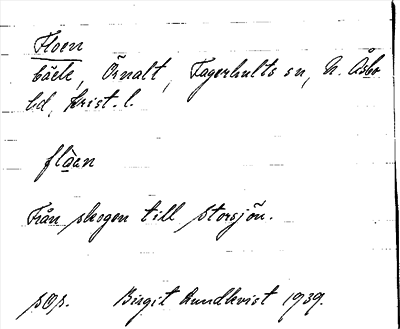 Floen
bäck, Örnalt, Fagerhults sn, N. Åsbo
hd, Krist. l.
flåan
Från skogen till Storsjön.
Birgit Rundkvist 1939.